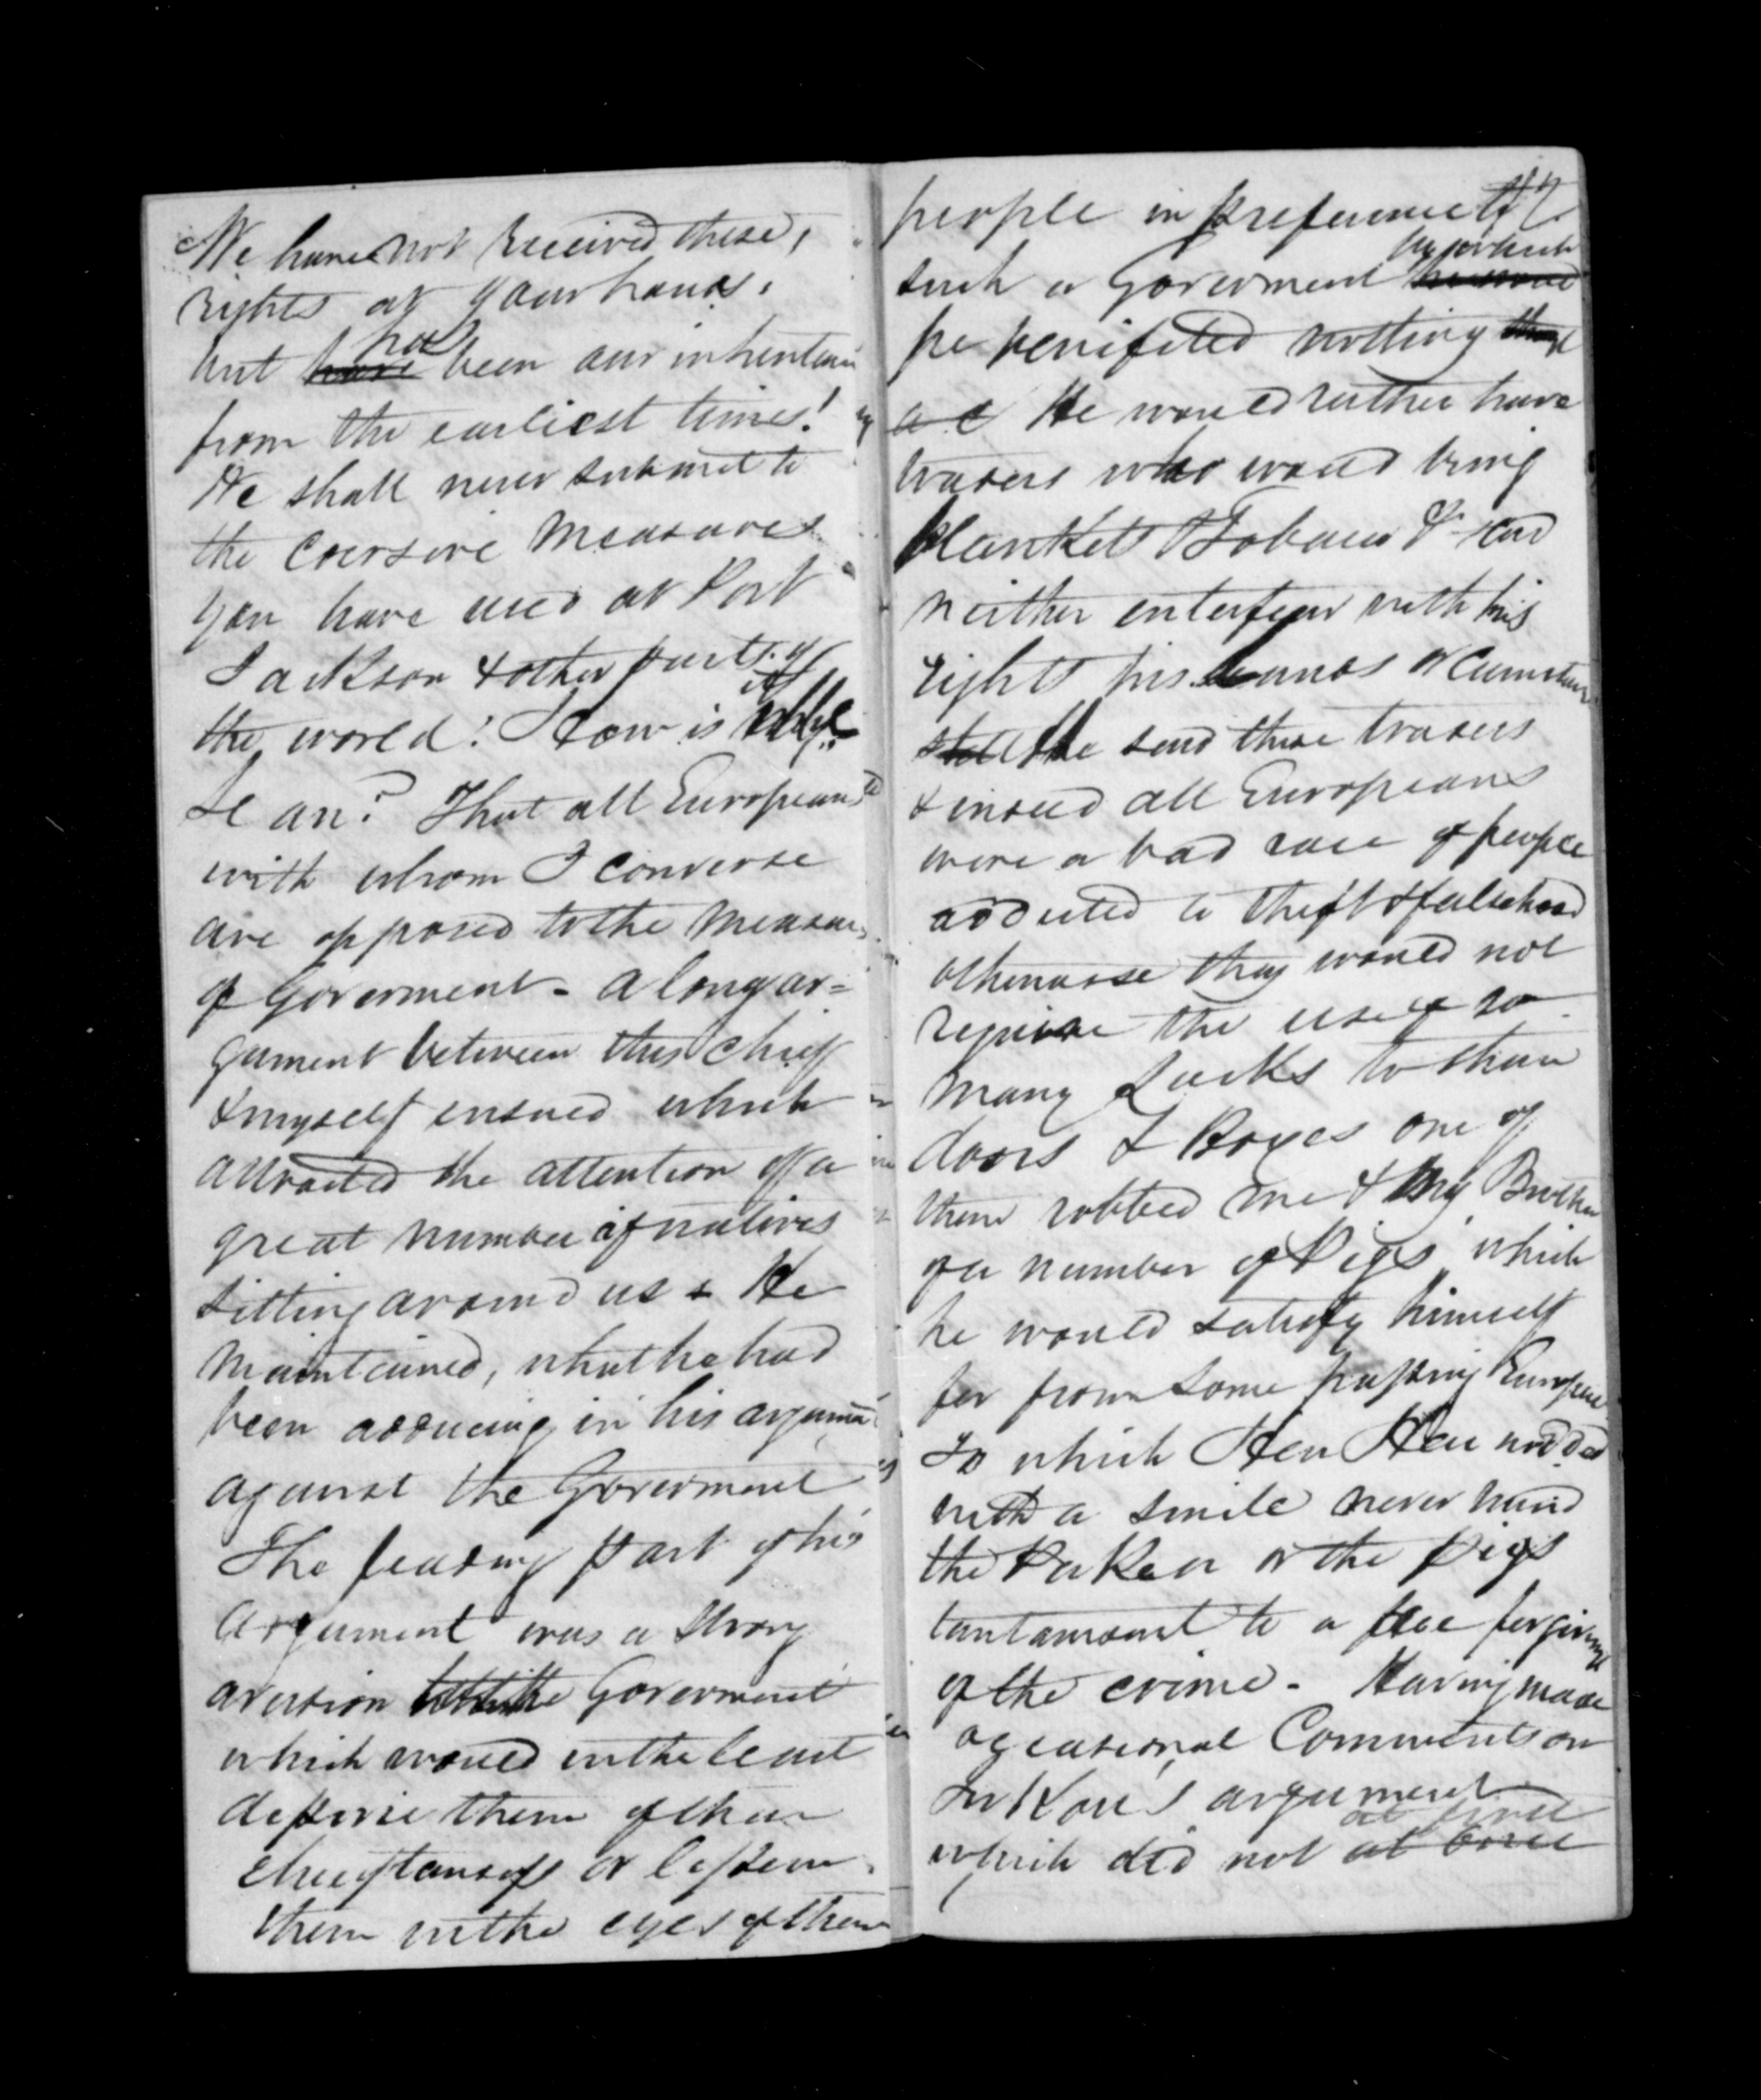 We have not received these,
rights at your hands.
but have has been our inheritance
from the earliest times!
We shall never submit to
the coersive measures
you have used at Port
Jackson & other parts of
the world! How is it
Se an? That all Europeans
with whom I converse
are opposed to the measures
of Goverment - a long ar=
gument between this chief
& myself ensued which
attracted the attention of a
great number of natives
sitting around us & He
maintained, what he had
been adducing in his argument
against the Goverment
The leading part of his
argument was a strong
aversion to the Goverment
which would in the least
deprive them of their
chieftanship or lessen
them in the eyes of their
people in preference to
such a Goverment by which
he benifited nothing
a c He would rather have
traders who would bring
Blankets Tobacco & and
neither enterfear with his
rights his Lands or Cumstuns
he said these traders
& indeed all Europeans
were a bad race of people
addicted to theft & falsehood
otherwise they would not
require the use of so
many Locks to their
doors & Boxes one of
them robbed me & my Brother
of a number of Pigs which
he would satisfy himself
for from some passing European
to which Heu Heu nodded
with a smile never mind
the Pakea or the pigs
tantamount to a free forgiveness
of the crime - Having made
occasional Comments on
argument
which did not at once at once